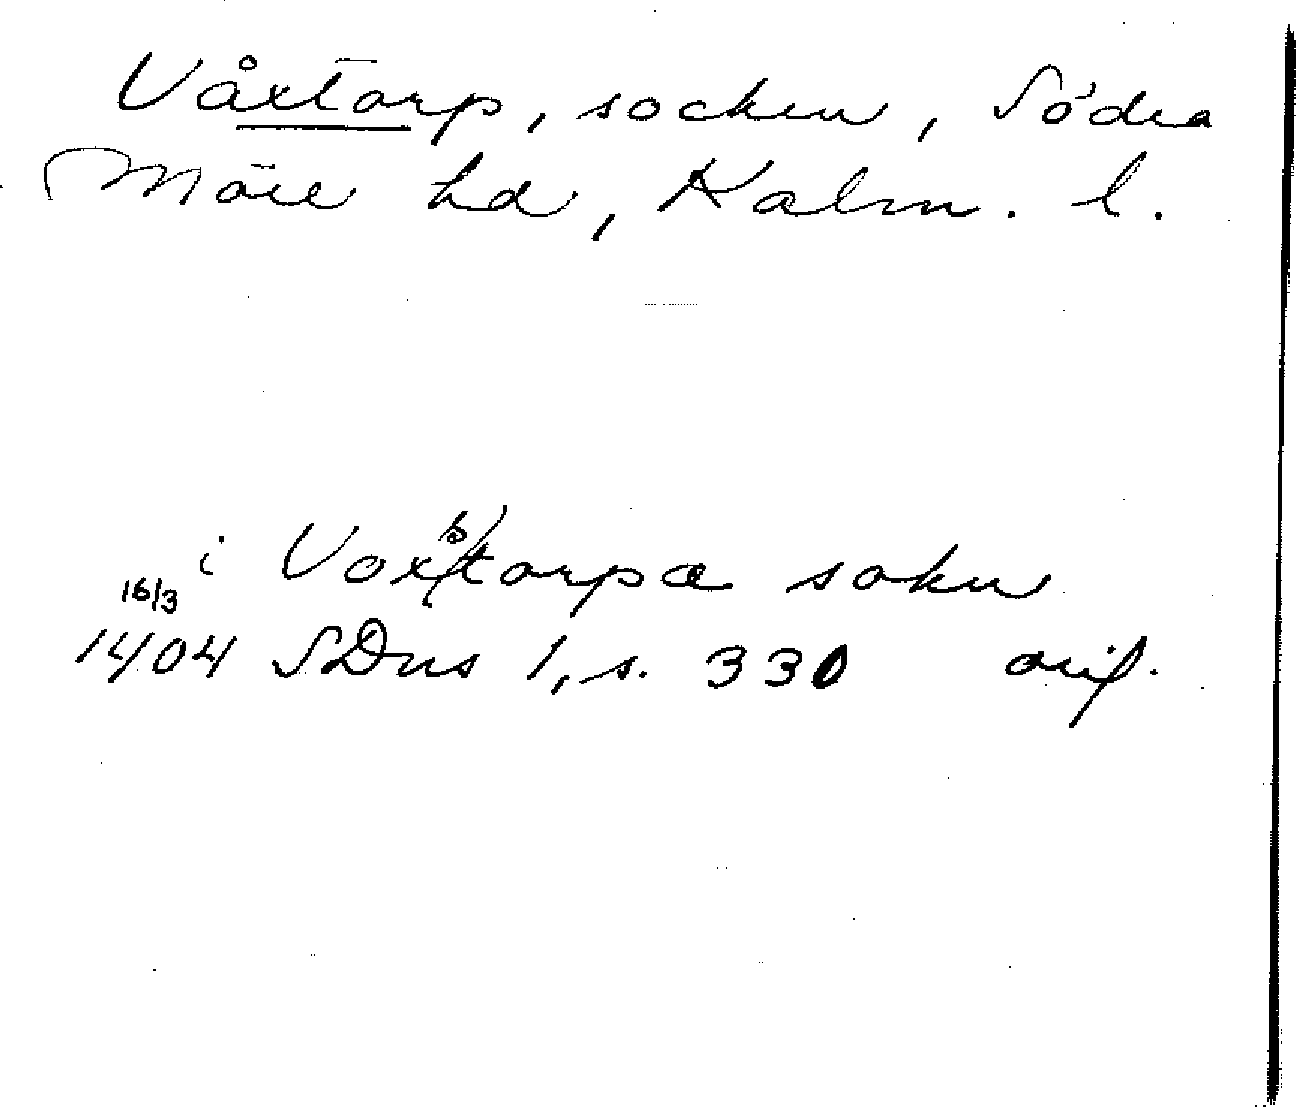 Våxtorp, socken, Södra
Möre hd, Kalm. l.
i Voxtorpa sokn
16/3
1404 SDns 1, s. 330 orig.